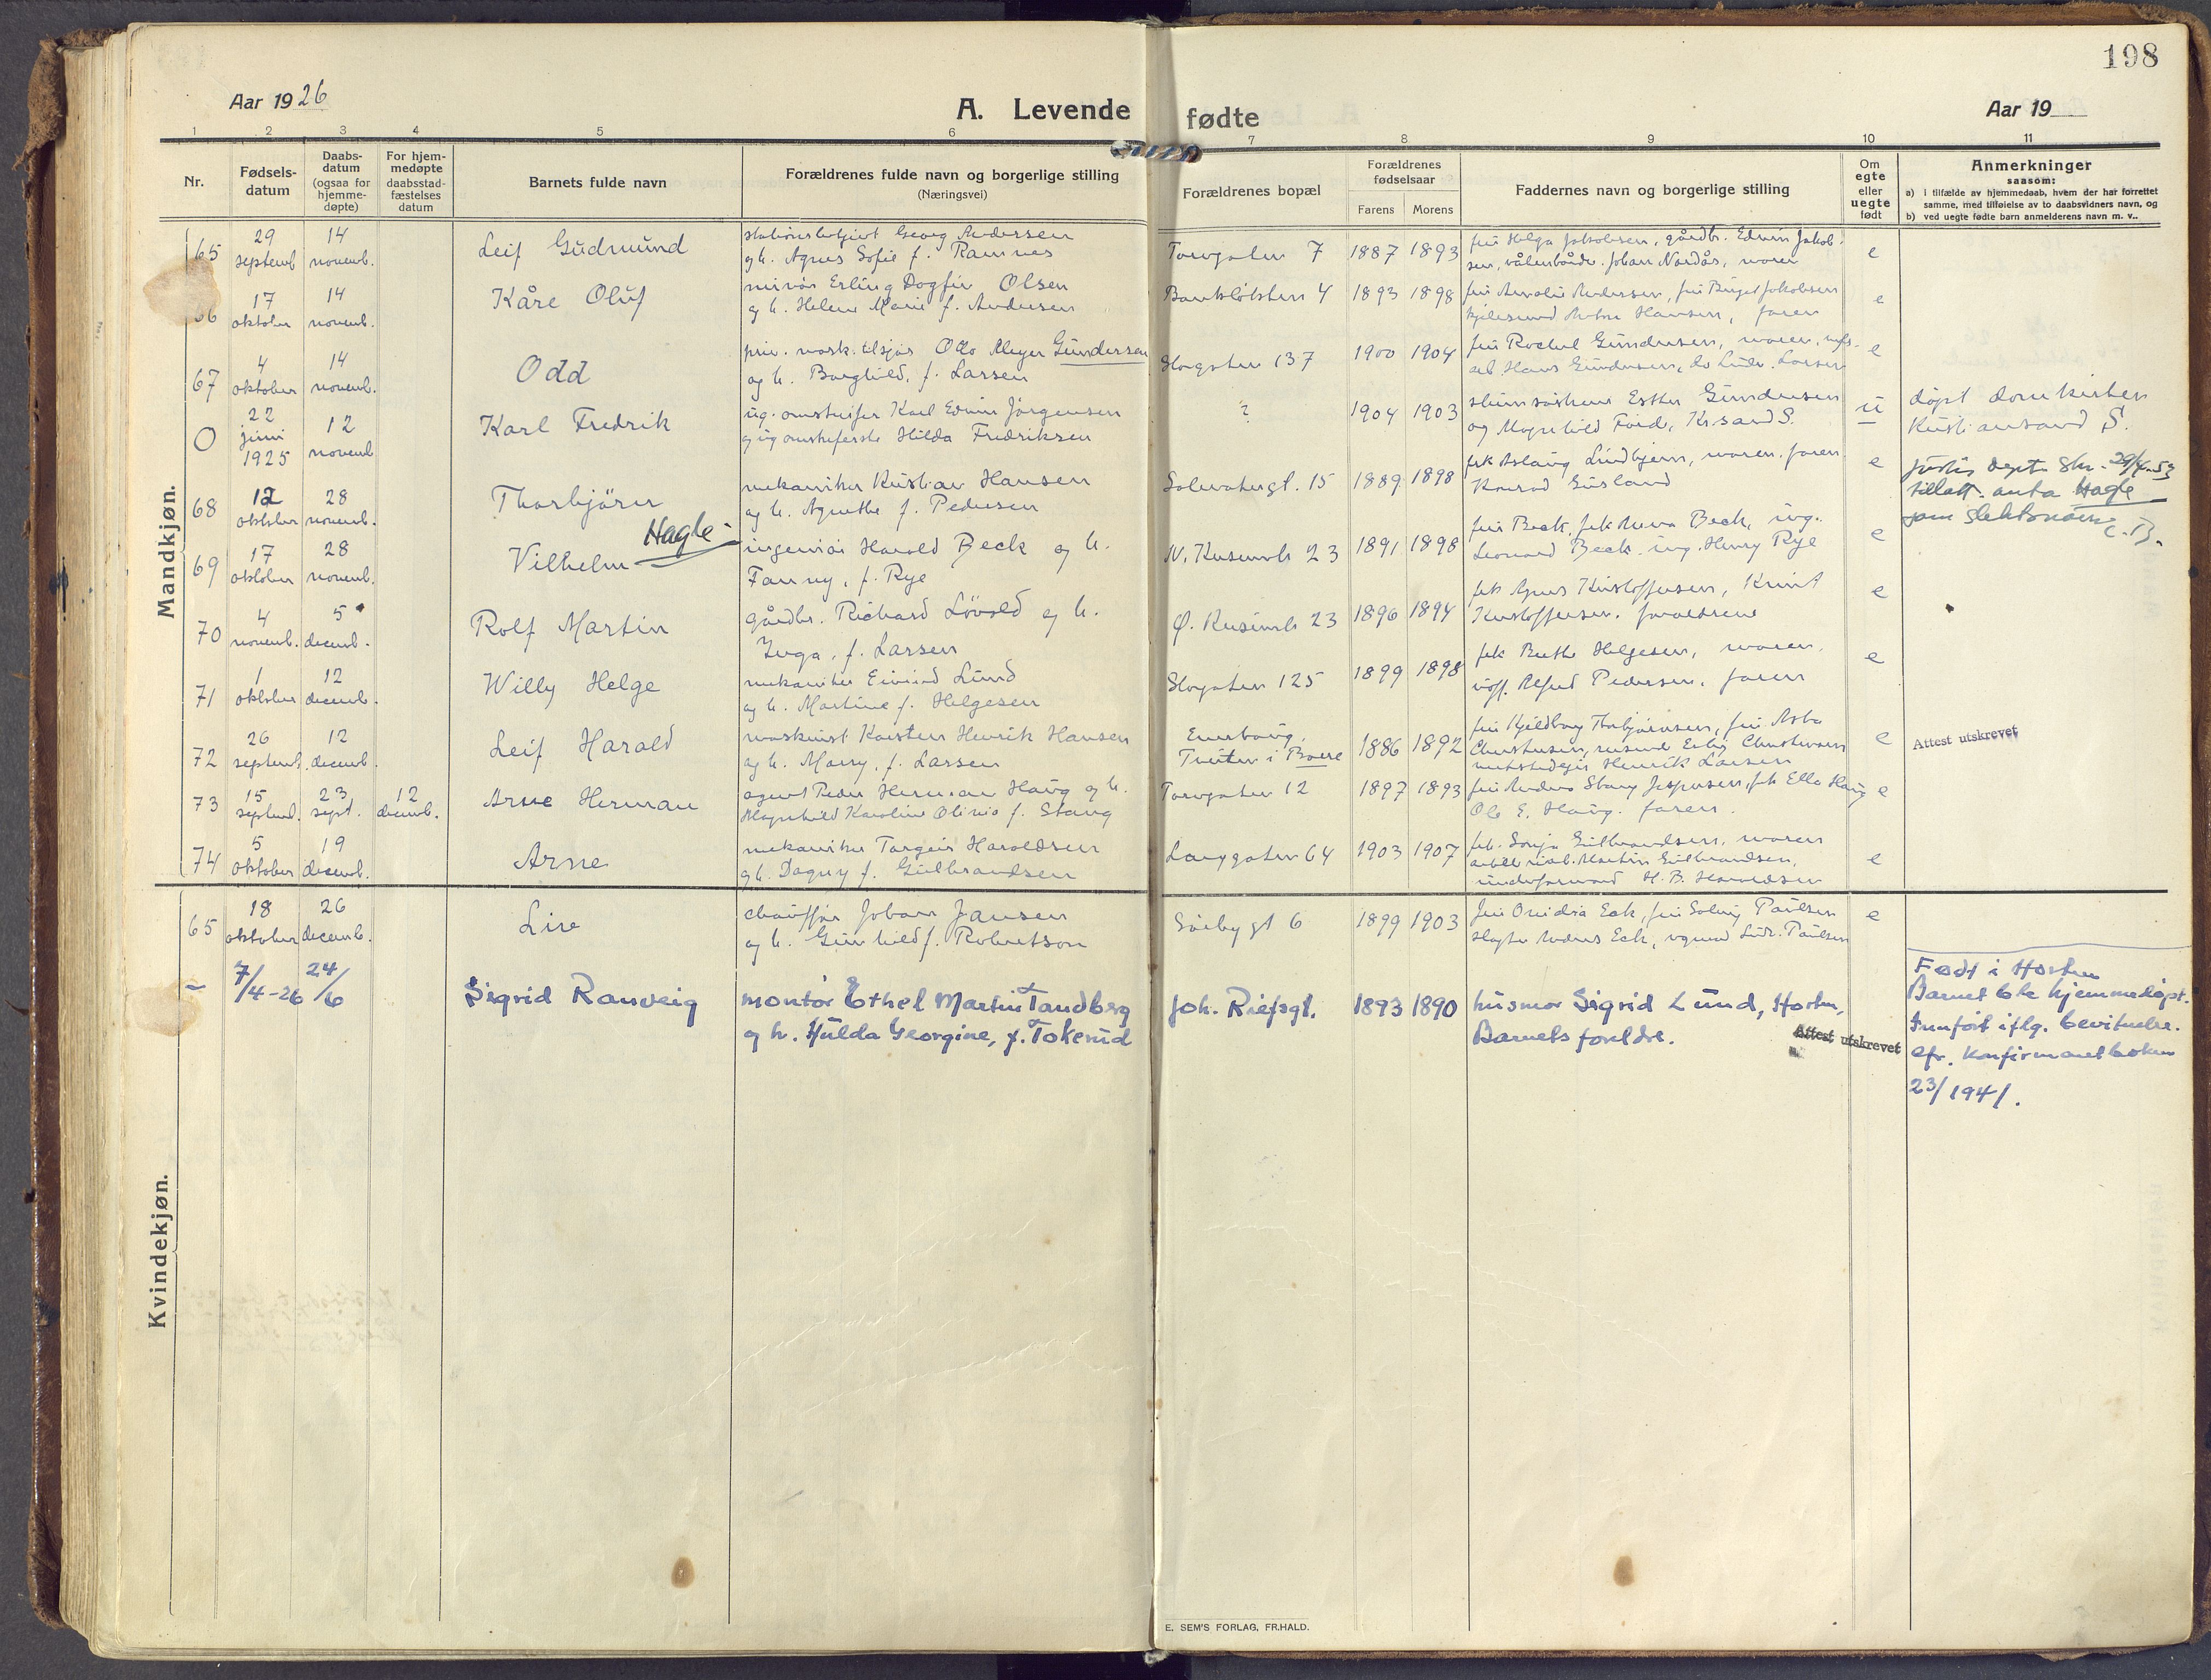 198
Aar 1926
A. Levende fødte
Aar 19
1 2 3 4 5 6 7 8 9 10 11
Nr.
Fødsels-
datum
Daabs-
datum
(ogsaa for
hjemme-
døpte)
For hjem-
medøpte
daabsstad-
fæstelses
datum
Barnets fulde navn
Forældrenes fulde navn og borgerlige stilling
(Næringsvei)
Forældrenes bopæl
Forældrenes
fødselsaar
Farens Morens
Faddernes navn og borgerlige stilling
Om
egte
eller
uegte
født
Anmerkninger
saasom:
a) i tilfælde av hjemmedaab, hvem der har forrettet
samme, med tilføielse av to daabsvidners navn, og
b) ved uegte fødte barn anmelderens navn m. v..
Mandkjøn.
65 29 septemb 14 novemb. Leif Gudmund
Georg Andersen
og h. Agnes Sofie f. Ramnes
Torvgaten 7 1887 1893
fru Helga Jakobsen, gårdbr. Edwin Jakob-
sen, Johan Nordås, moren
e
66 17 oktober 14 novemb. Kåre Oluf
Erling Dagfin Olsen
og h. Helene Marie f. Andersen
4 1893 1898
fru Amalie Andersen, fru Birgit Jakobsen
Hansen, faren
e
67 4 oktober 14 novemb. Odd
Otto Meyer Gundersen
og h. Borghild, f. Larsen
Storgaten 137 1900 1904
fru Rachel Gundersen, moren,
arb. Hans Gundersen, do Ludv. Larsen
e
0 22 juni 1925 12 novemb Karl Fredrik
ug. omstreifer Karl Edvin Jörgensen
og ug omstreiferske Hilda Fredriksen
? 1904 1903
Esther Gundersen
og Magnhild Kr.sand S.
u
döpt domkirken
Kristiansand S.
68 12 oktober 28 novemb. Thorbjörn
mekaniker Kristian Hansen
og h. Agnethe f. Pedersen
15 1889 1898
frk Aslaug moren. faren
Konrad
e
29/4-53
tillatt. anta Hagle
som slektsnavn
69 17 oktober 28 novemb. Vilhelm Hagle
ingeniör Harald Beck og h.
Fanny, f. Rye
23 1891 1898
fru Beck, frk Anna Beck, ing.
Leonard Beck. ing. Henry Rye
e
70 4 novemb. 5 decemb. Rolf Martin
gårdbr. Richard Lövold og h.
Inga, f. Larsen
Ø. 23 1896 1894
frk Agnes Kristoffersen, Knut
Kristoffersen. foreldrene
e
71 1 oktober 12 decemb. Willy Helge
mekaniker Eivind Lund
og h. Martine f. Helgesen
Storgaten 125 1899 1898
frk Berthe Helgesen, moren,
Alfred Pedersen. faren
e
72 26 septemb. 12 decemb. Leif Harald
maskinist Karsten Henrik Hansen
og h. Marry, f. Larsen
i Borre 1886 1892
fru Kjeldborg Thorbjörnsen, fru Asta
Christensen,
Henrik Larsen
e
Attest utskrevet
73 15 septemb. 23 sept. 12 decemb. Arne Herman
agent Peder Herman Haug og h.
Magnhild Karoline Olivia f. Stang
Torvgaten 12 1897 1893
fru Andrea Stang Jespersen, frk Ella Haug
Ole E. Haug. faren.
e
74 5 oktober 19 decemb. Arne
mekaniker Torgeir Haraldsen
og h. Dagny f. Gulbrandsen
Langgaten 64 1903 1907
frk. Sonja Gulbrandsen, moren
Martin Gulbrandsen,
H. B. Haraldsen
e
Kvindekjøn.
65 18 oktober 26 decemb. Lise
chauffør Johan Jansen
og h. Gunhild f. Robertson
6 1899 1903
fru Eek, fru Solveig Paulsen
Anders Eek, Ludv. Paulsen
e
— 7/4-26 24/6 Sigrid Ranveig
montør Ethel Martin Tandberg
og h. Hulda Georgine, f. Tokerud
Joh. 1893 1890
husmor Sigrid Lund, Horten,
Barnets foreldre.
Attest utskrevet
Født i Horten
Barnet ble hjemmedøpt.
Innført iflg. bevitnelse.
cfr. konfirmantboken
23/1941.
E. SEM'S FORLAG, FR.HALD.